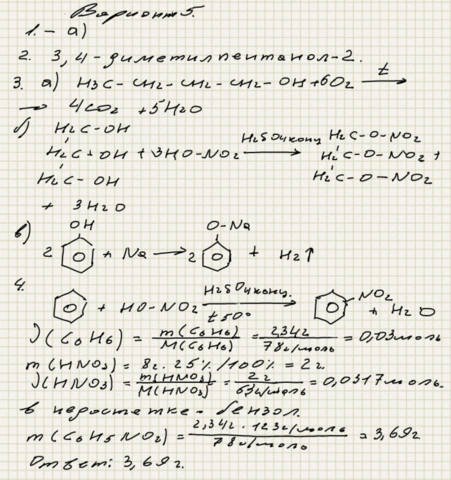 Вариант 5.
1. - а)
2. 3,4-диметилпентанол-2.
3. а) H3C-CH2-CH2-CH2-OH+6O2 t→
→ 4CO2 + 5H2O
б) H2C-OH
H2C+OH + 3HO-NO2 H2SO4конц→ H2C-O-NO2
H2C-O-NO2 +
H2C-OH H2C-O-NO2
+ 3H2O
в) OH O-Na
2 + Na → 2 + H2↑
4.
+ HO-NO2 H2SO4конц. t50° → NO2 + H2O
ν(C6H6) = m(C6H6)/M(C6H6) = 2,34г/78г/моль = 0,03моль
m(HNO3) = 8г. 25%/100% = 2г.
ν(HNO3) = m(HNO3)/M(HNO3) = 2г/63г/моль = 0,0317моль.
в недостетке - бензол.
m(C6H5NO2) = 2,34г. 123г/моль/78г/моль = 3,69г
Ответ: 3,69г.